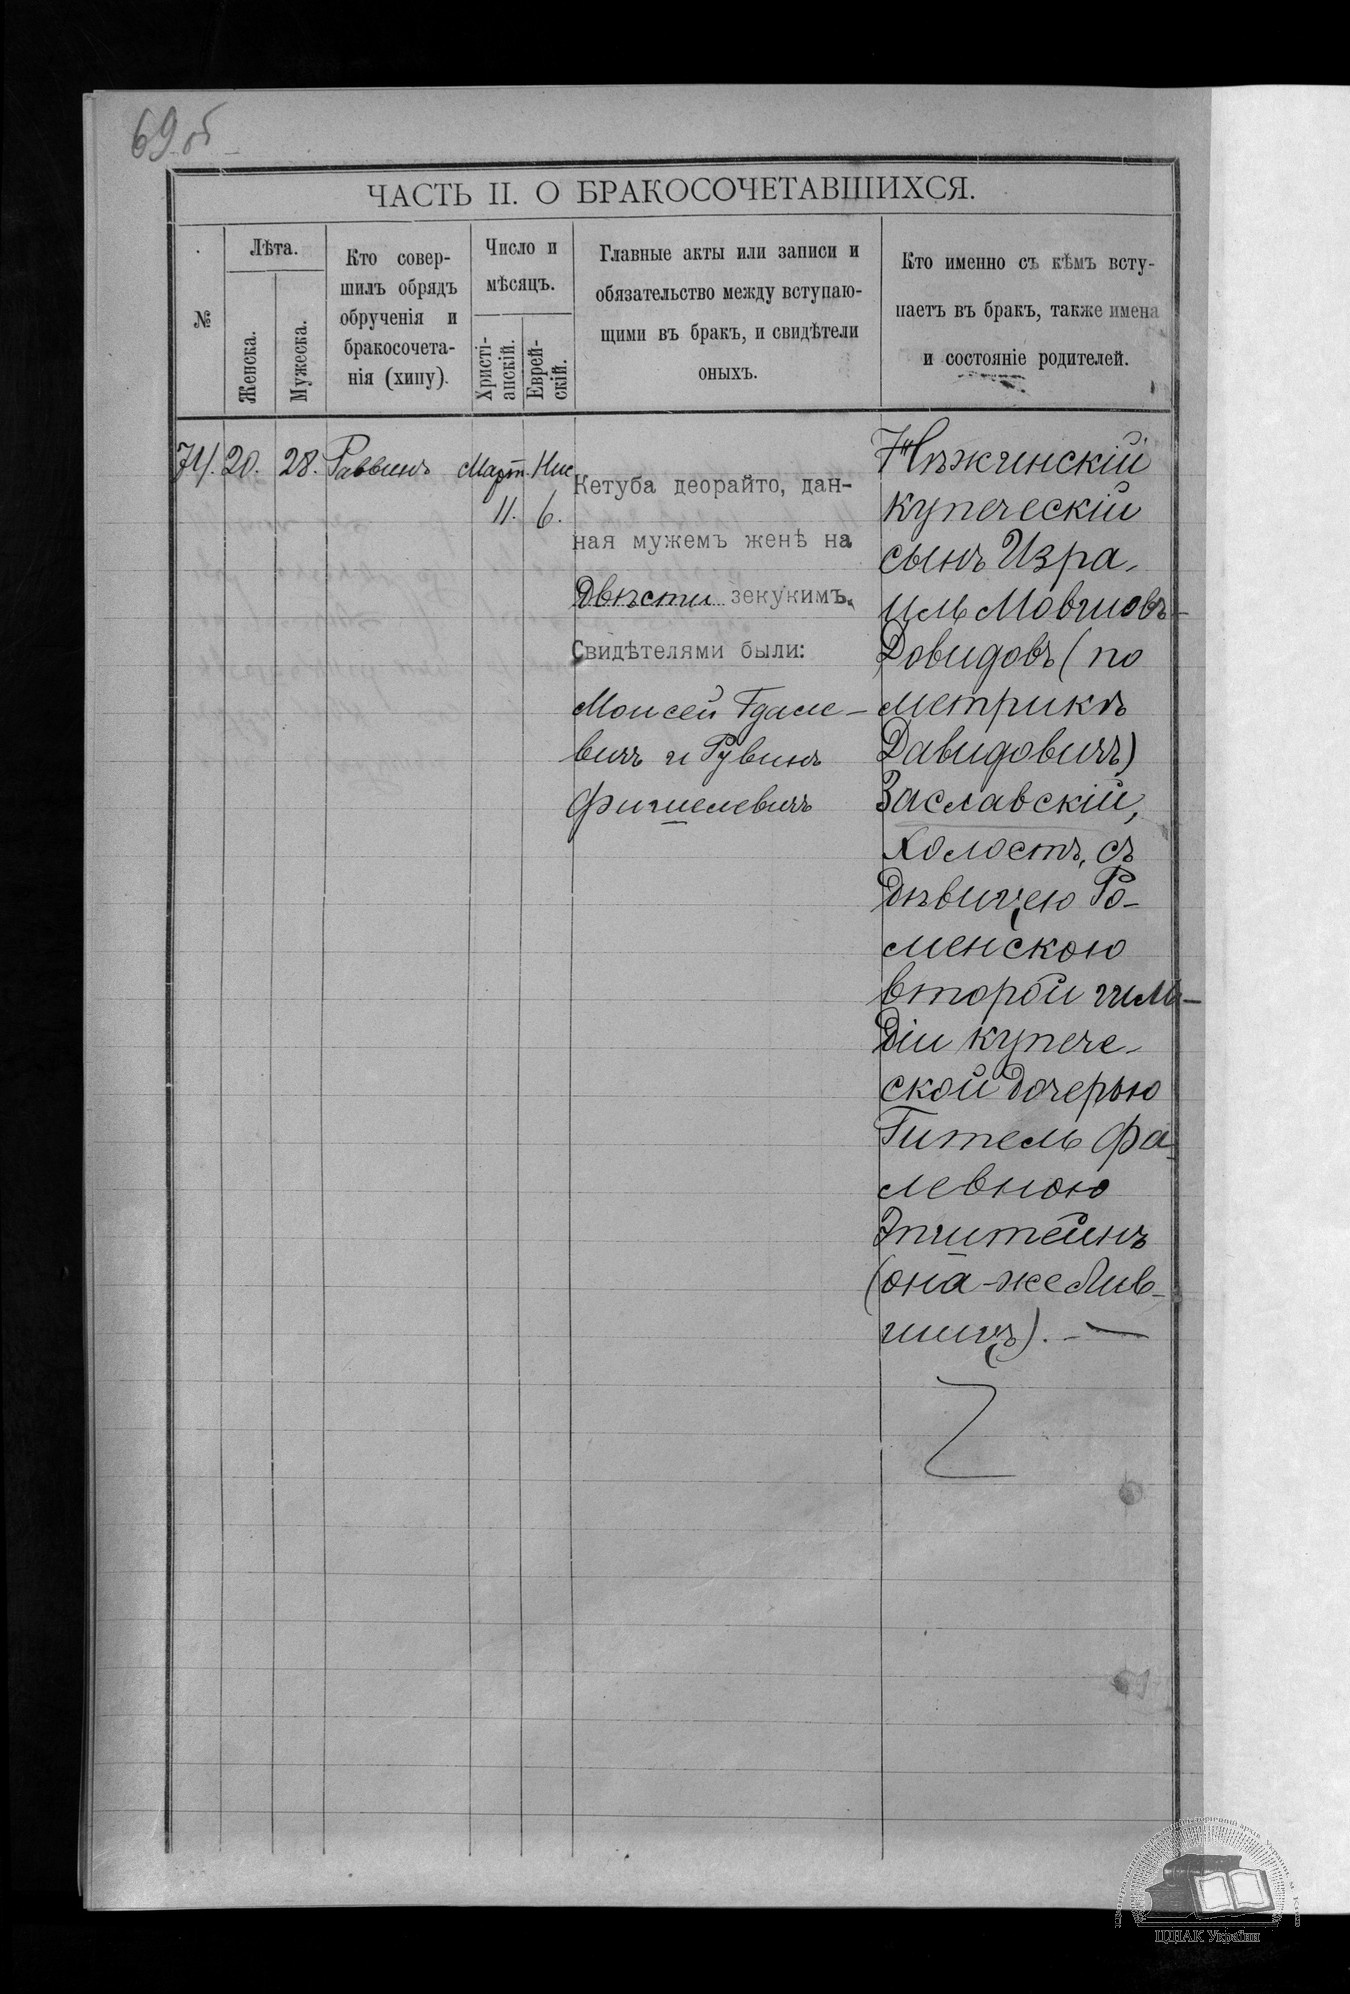 69 об
ЧАСТЬ II. О БРАКОСОЧЕТАВШИХСЯ.
№
Лѣта.
Женска.
Мужеска.
Кто совер-
шилъ обрядъ
обрученія и
бракосочета-
нія (хипу).
Число и
мѣсяцъ.
Христі-
анскій.
Еврей-
скій.
Главные акты или записи и
обязательство между вступаю-
щими въ бракъ, и свидѣтели
оныхъ.
Кто именно съ кѣмъ всту-
паетъ въ бракъ, также имена
и состояніе родителей.
74. 20. 28. Раввинъ Март. Нис
11. 6.
Кетуба деорайто, дан-
ная мужемъ женѣ на
Двѣсти зекукимъ.
Свидѣтелями были:
Моисей Гдале-
вичъ и Рувинъ
Фишелевичъ
Нѣжинскій
купеческій
сынъ Изра-
иль Мовшовъ-
Довидовъ (по
метрикѣ
Давидовичъ)
Заславскій,
холостъ, съ
дѣвицею Ро-
менскою
второй гиль-
діи купече-
ской дочерью
Гитель Фа-
левною
Эпштейнъ
(она-же Лив-
шицъ). —
ЦДІАК України